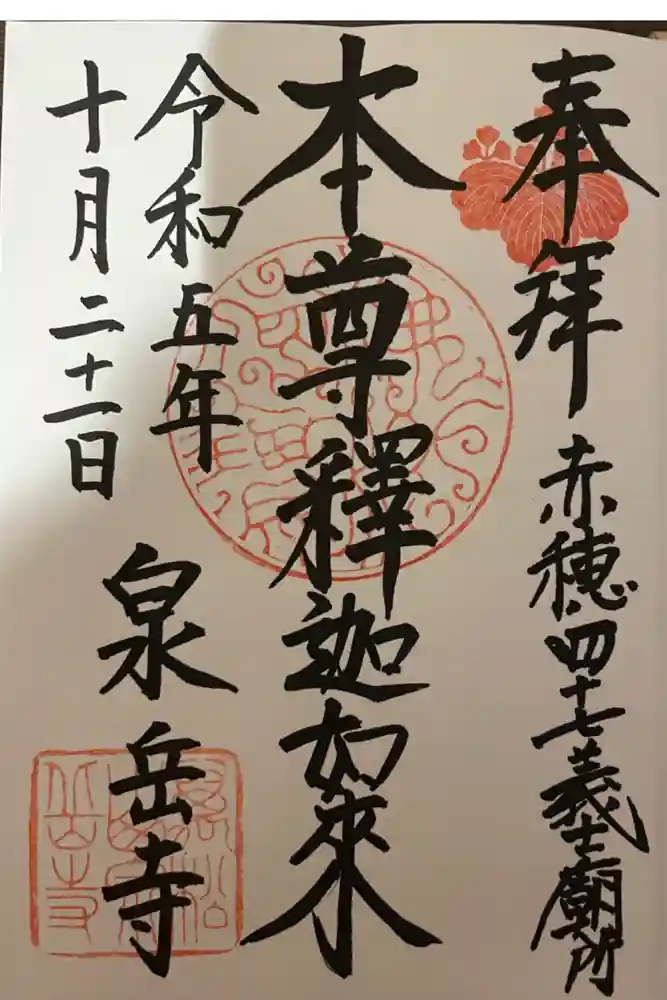 奉拜 赤穂四十七義士廟所
本尊釋迦如來
令和五年
十月二十一日
泉岳寺